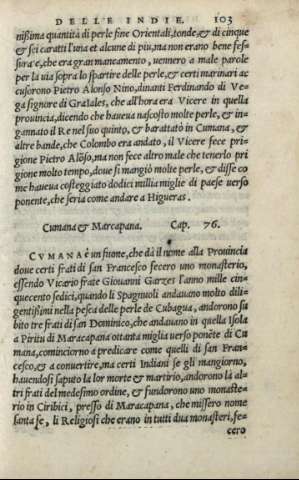 DELLE INDIE. 103
nißima quantità di perle fine Orientali, tonde, & di cinque
& sei caratti l'una et alcune di piu, ma non erano bene fes-
sura e, che era gran mancamento, uennero a male parole
per la uia sopra lo spartire delle perle, & certi marinari ac
cusorono Pietro Alonso Nino, dinanti Ferdinando di Ve-
ga signore di Grajales, che all'hora era Vicere in quella
prouincia, dicendo che haueua nascosto molte perle, & in-
gannato il Re nel suo quinto, & barattato in Cumana, &
altre bande, che Colombo era andato, il Vicere fece pri-
gione Pietro Alõso, ma non fece altro male che tenerlo pri
gione molto tempo, doue si mangiò molte perle, & disse co
me haueua costeggiato dodici millia miglie di paese uerso
ponente, che seria come andare a Higueras.
Cumana & Marcapana. Cap. 76.
CVMANA è un fiume, che dà il nome alla Prouincia
doue certi frati di san Francesco fecero uno monasterio,
essendo Vicario frate Giouanni Garzes l'anno mille cin-
quecento sedici, quando li Spagnuoli andauano molto dili-
gentißimi nella pesca delle perle de Cubagua, andorono su
bito tre frati di san Dominico, che andauano in quella Isola
a Piritu di Maracapana ottanta miglia uerso ponẽte de Cu
mana, cominciorno a predicare come quelli di san Fran-
cesco, & a conuertire, ma certi Indiani se gli mangiorno,
hauendosi saputo la lor morte & martirio, andorono là al-
tri frati del medesimo ordine, & fundorono uno monaste-
rio in Ciribici, presso di Maracapana, che missero nome
santa fe, li Religiosi che erano in tutti dua monasteri, fe-
cero